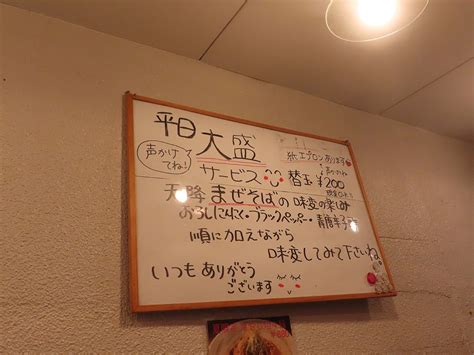 平日大盛
声かけてね!
サービス
紙エプロンあります
替玉 ¥200
まぜそばの味変の楽しみ
おろしにんにく・ブラックペッパー・青唐辛子
順に加えながら
味変してみて下さいね
いつもありがとう
ございます